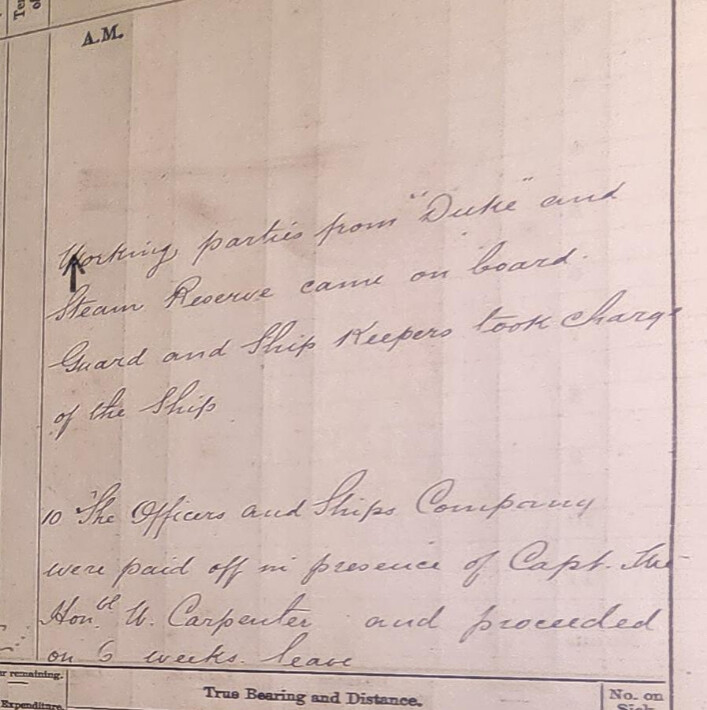 Te
of
A.M.
Working parties from "Duke" and
Steam Reserve came on board.
Guard and Ship Keepers took charge
of the Ship
10 The Officers and Ships Company
were paid off in presence of Capt. the
Honble W. Carpenter and proceeded
on 6 weeks. leave
r remaining.
Expenditure.
True Bearing and Distance.
No. on
Sick